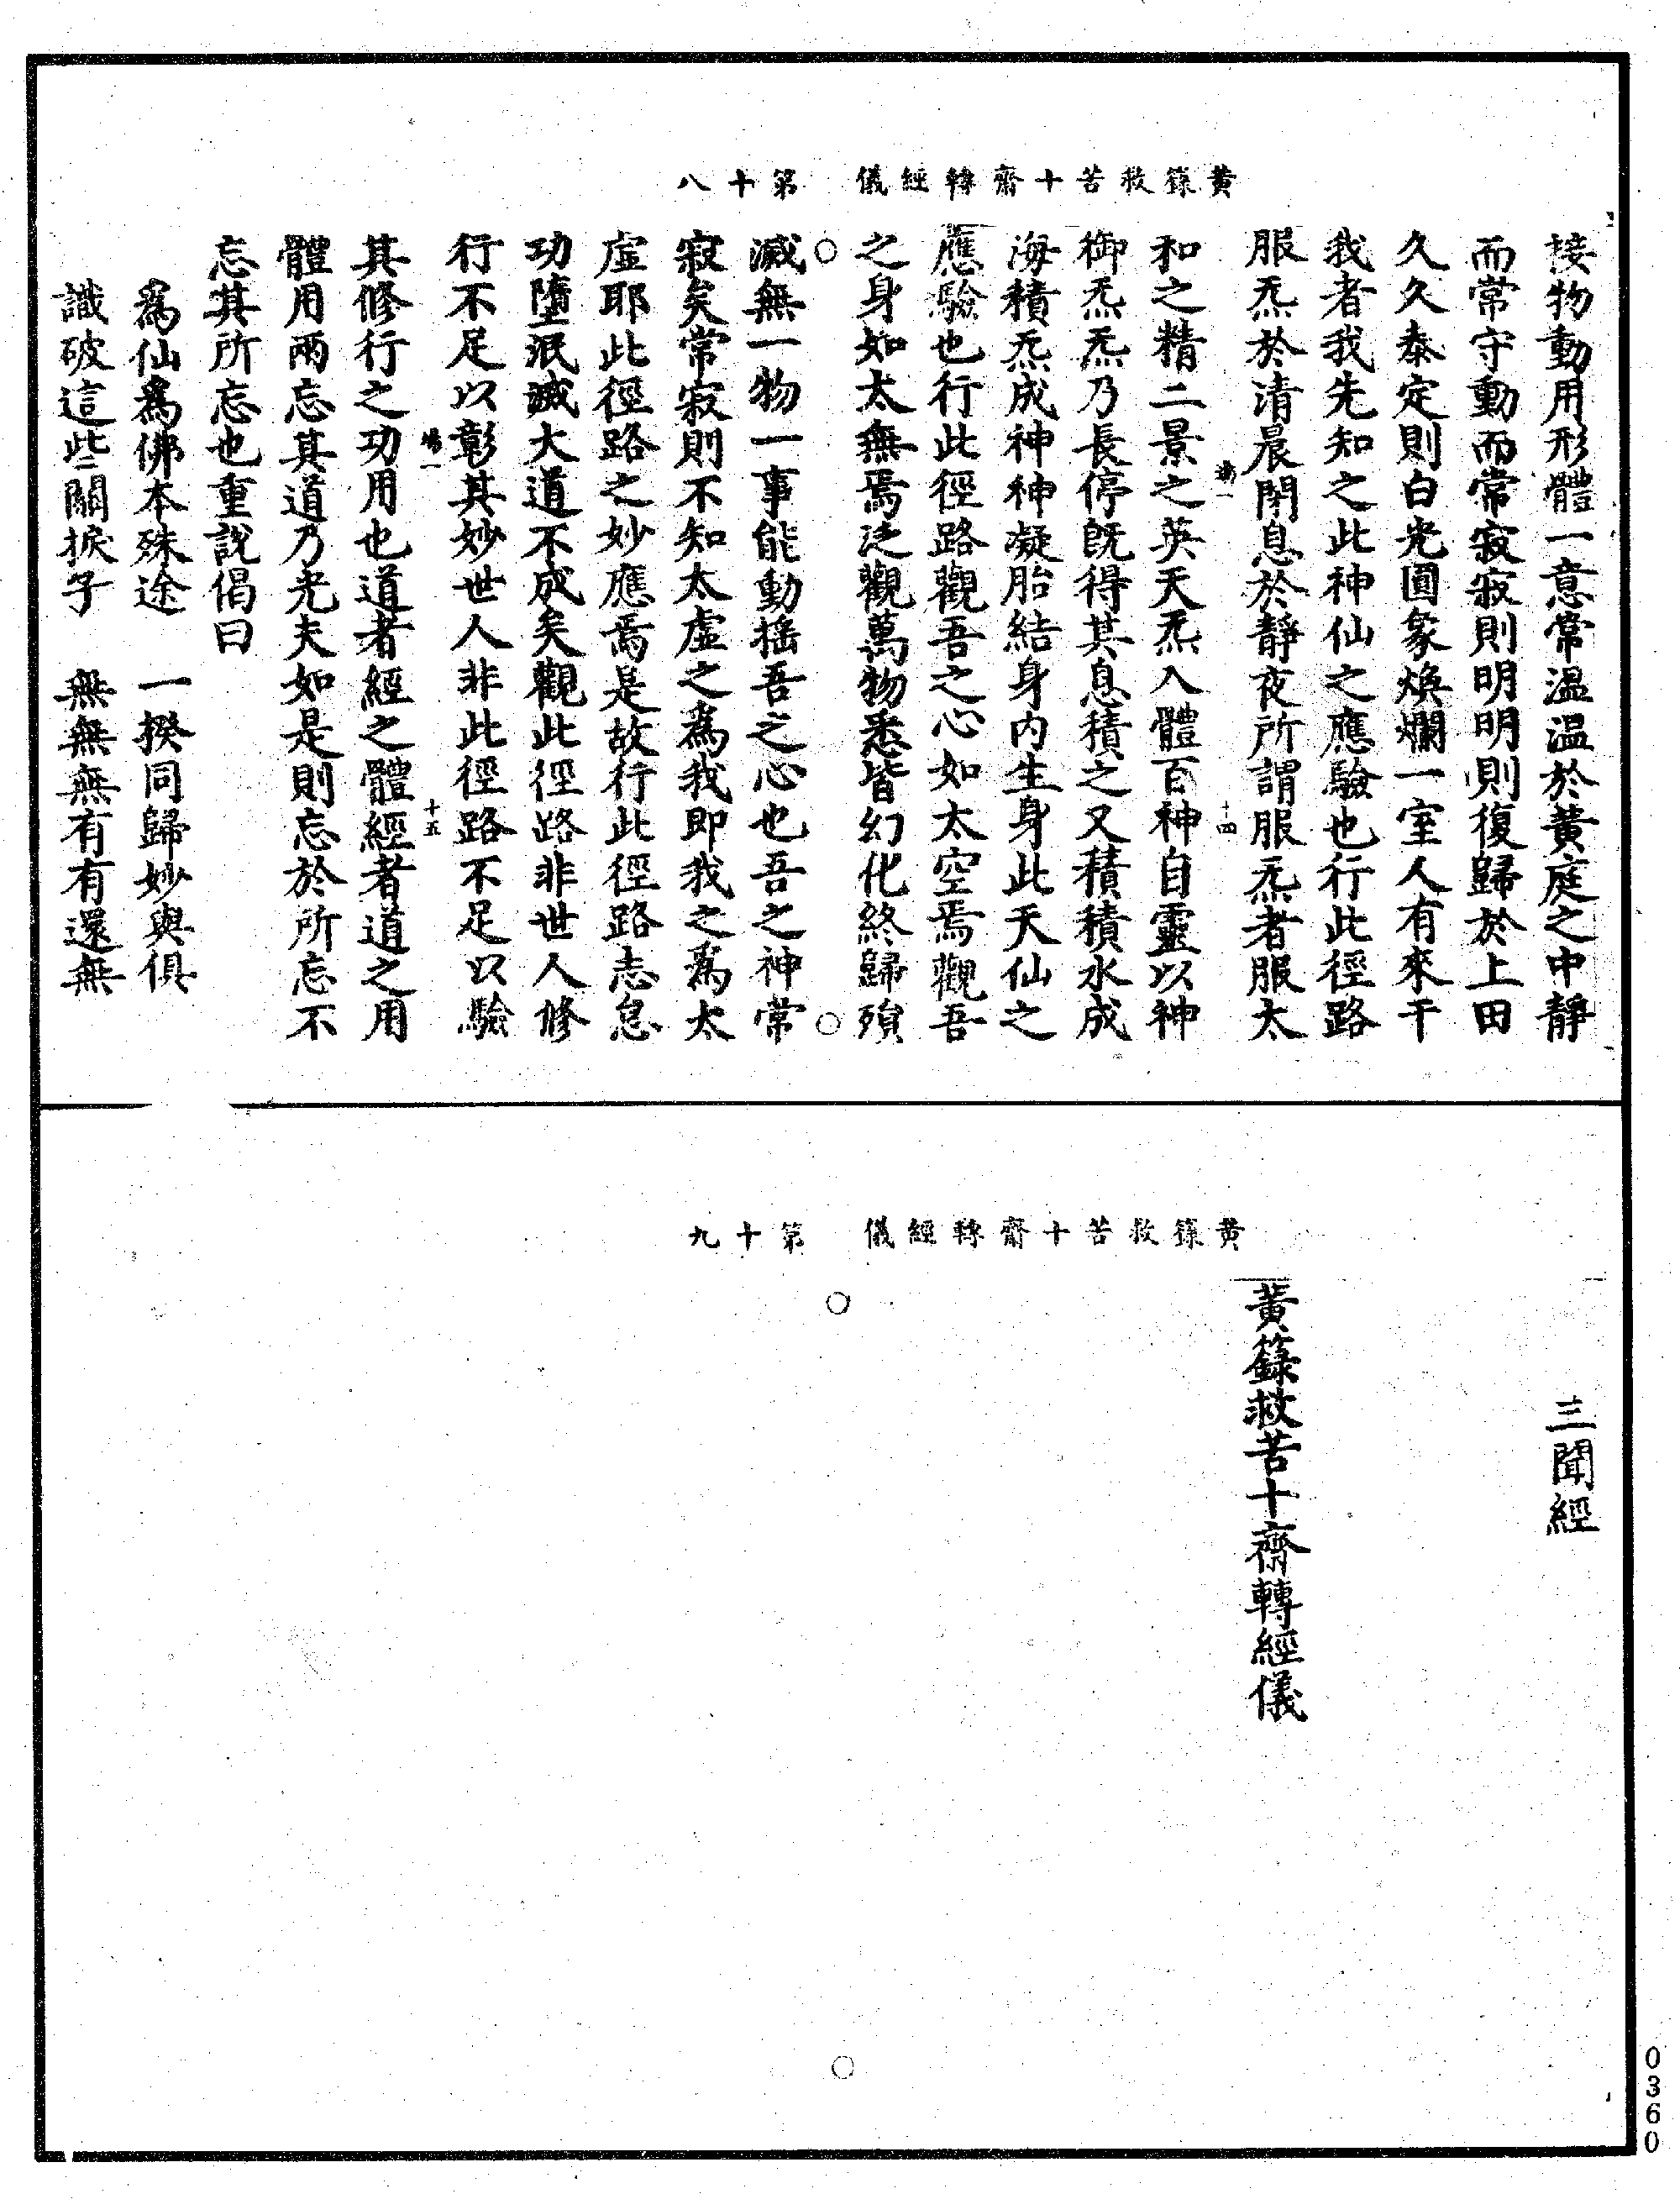 黃籙救苦十齋轉經儀　第十八
接物動用形體一意常溫溫於黃庭之中靜
而常守動而常寂寂則明明則復歸於上田
久久泰定則白光圓象煥爛一室人有來干
我者我先知之此神仙之應驗也行此徑路
服炁於清晨閉息於靜夜所謂服炁者服太
十四
和之精二景之英天炁入體百神自靈以神
御炁炁乃長停旣得其息積之又積積水成
海積炁成神神凝胎結身內生身此天仙之
應驗也行此徑路觀吾之心如太空焉觀吾
之身如太無焉泛觀萬物悉皆幻化終歸殞
滅無一物一事能動搖吾之心也吾之神常
寂矣常寂則不知太虛之爲我即我之爲太
虛耶此徑路之妙應焉是故行此徑路志怠
功墮泯滅大道不成矣觀此徑路非世人修
行不足以彰其妙世人非此徑路不足以驗
十五
其修行之功用也道者經之體經者道之用
體用兩忘其道乃光夫如是則忘於所忘不
忘其所忘也重說偈曰
爲仙爲佛本殊途　一揆同歸妙與俱
識破這些關捩子　無無無有有還無
黃籙救苦十齋轉經儀　第十九
三聞經
黃籙救苦十齋轉經儀
0360